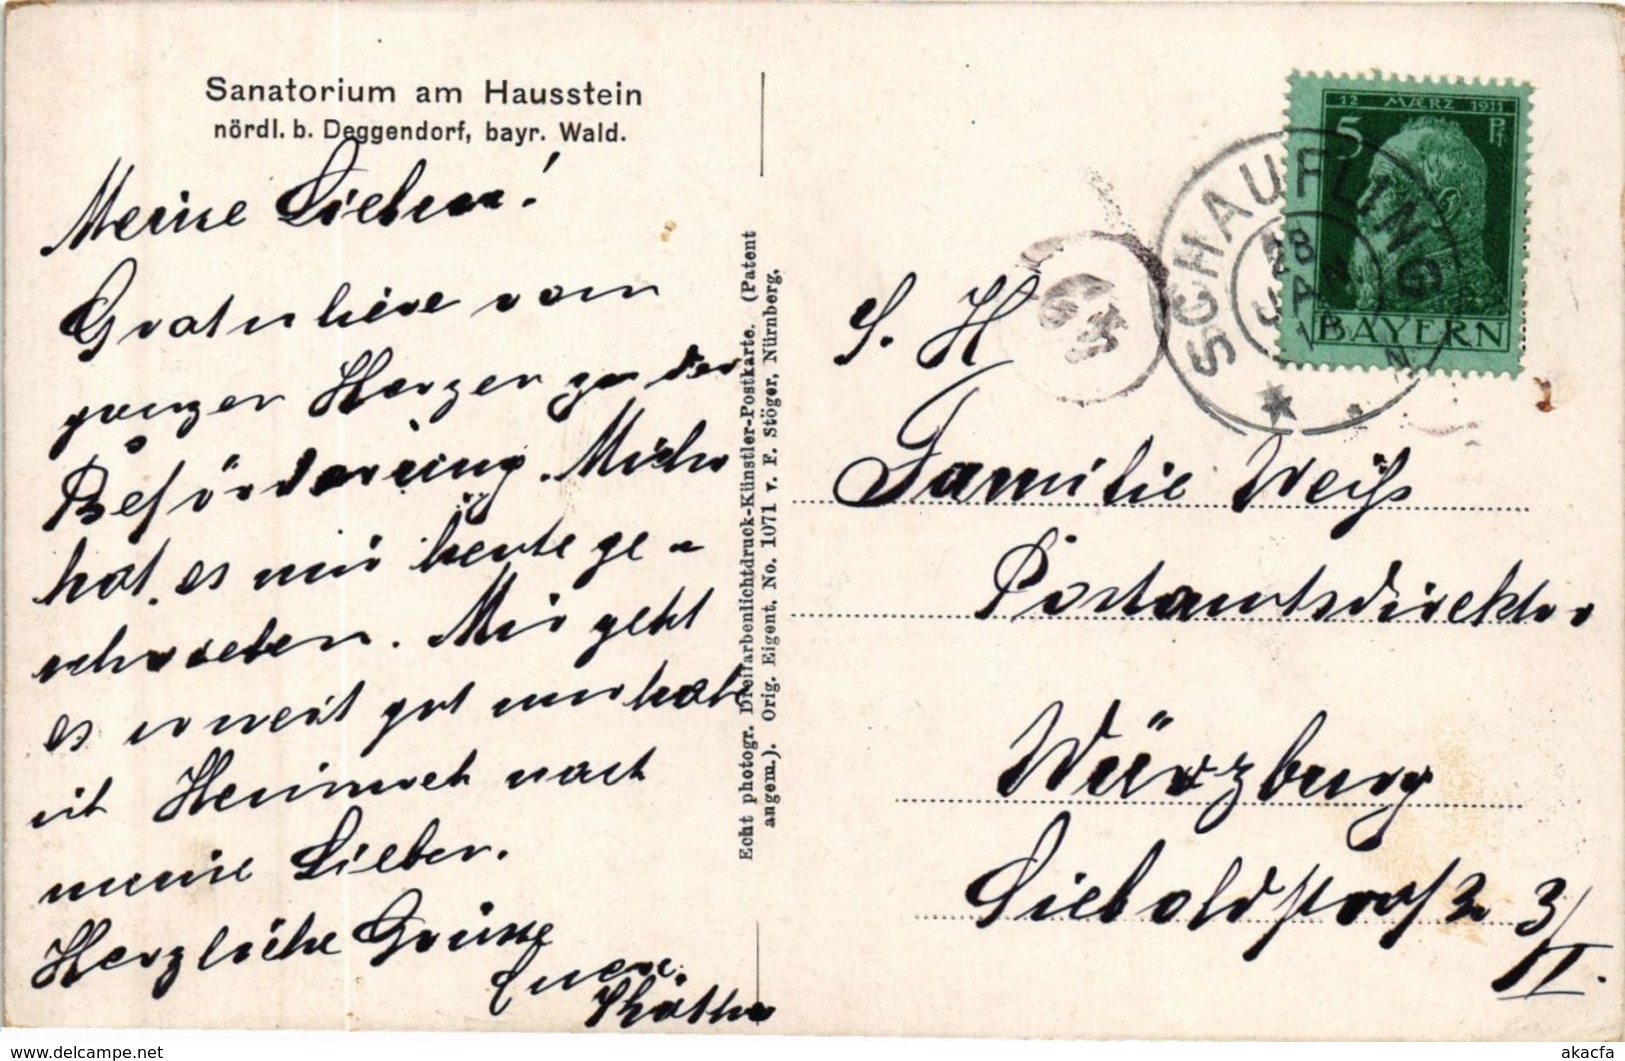 Sanatorium am Hausstein
nördl. b. Deggendorf, bayr. Wald.
Meine Lieben!
Gratuliere vom
ganzen Herzen zu der
Beförderung. Micha
hat es mir heute ge-
schrieben. Mir geht
es soweit gut nur habe
ich Heimweh nach
meine Lieben.
Herzliche Grüsse
Euere
Käthe
Echt photogr. Dreifarbenlichtdruck-Künstler-Postkarte. (Patent
angem.). Orig. Eigent. No. 1071 v. F. Stöger, Nürnberg.
12 MÆRZ 1911
5 Pf
BAYERN
SCHAUFLING
28
JAN
S. H
Familie Weiß
Postamtsdirektor
Würzburg
Sieboldstraße 3/
II.
akacfa
delcampe.net